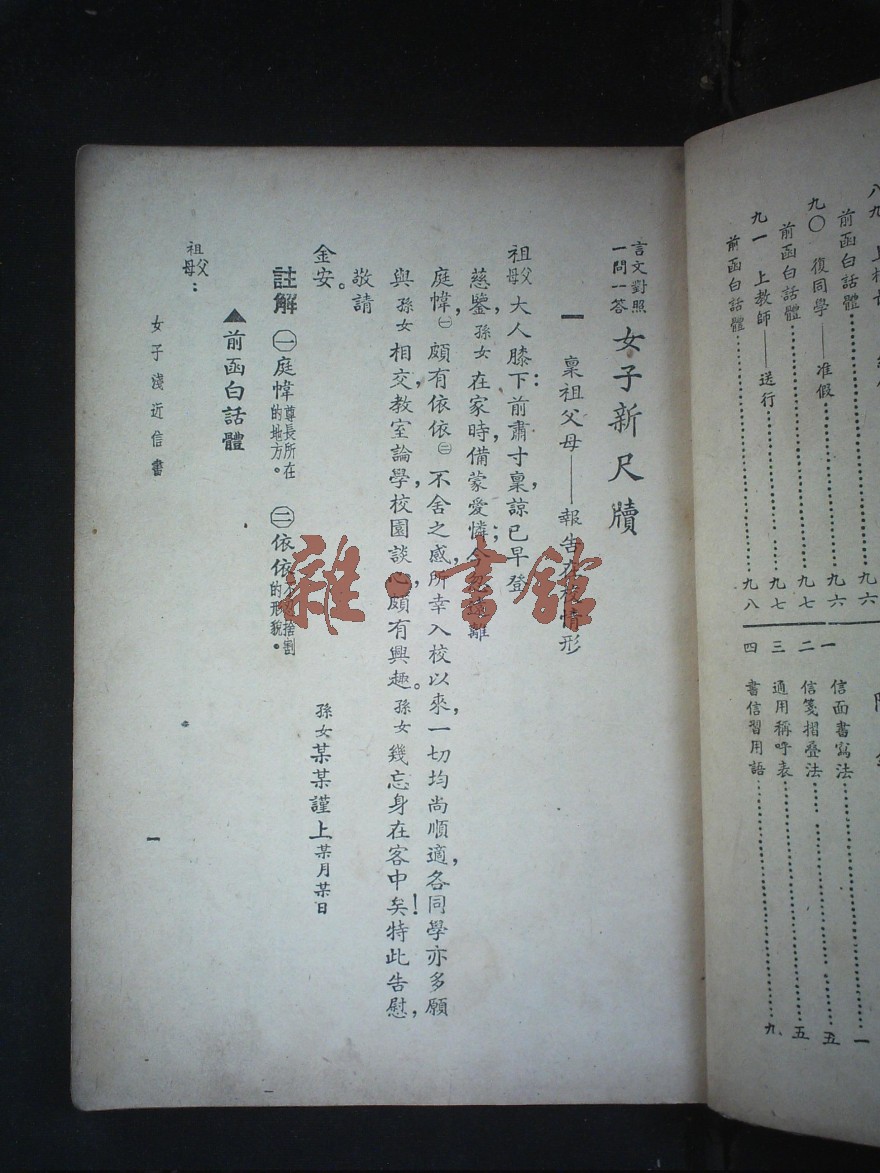 八九
前函白話體……九六
九〇 復同學——准假……九六
前函白話體……九七
九一 上教師——送行……九七
前函白話體……九八
一 信面書寫法……一
二 信箋摺叠法……五
三 通用稱呼表……五
四 書信習用語……九
言文對照
一問一答
女子新尺牘
一 稟祖父母——報告在校情形
祖父母大人膝下：前肅寸稟，諒已早登
慈鑒，孫女在家時，備蒙愛憐；今忽遠離
庭幃㊀，頗有依依㊁不舍之感，所幸入校以來，一切均尚順適，各同學亦多願
與孫女相交，教室論學，校園談心，頗有興趣。孫女幾忘身在客中矣！特此告慰，
敬請
金安。
孫女某某謹上某月某日
註解 ㊀庭幃 尊長所在的地方。 ㊁依依 不忍捨割的形貌。
▲前函白話體
祖父母：
女子淺近信書
一
雜·書館